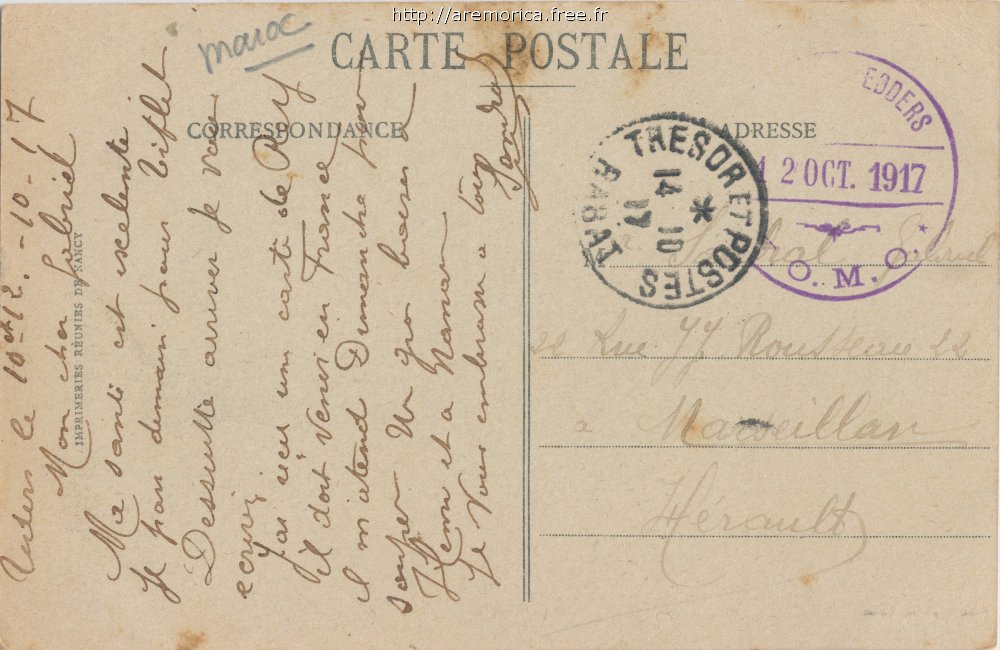 http://aremorica.free.fr
maroc
CARTE POSTALE
CORRESPONDANCE
ADRESSE
IMPRIMERIES RÉUNIES DE NANCY
le 12 -10-17
Mon cher Gabriel
Ma santé est excelente
Je pars demain pour Tiflet
Dessuitte arriver je vous
ecrirè
J'as reçu un carte de Rey
il doit venir en France
il m'atend Dumanche pour
souper Un gros baiser a
Henri et a Maman
Je vous embrasse a tous
TRESOR ET POSTES
RABAT
14 10
17
EDDERS
12 OCT. 1917
O.M.O.
Gabriel
22 Rue JJ Rousseau 22
a Marseillan
Hérault